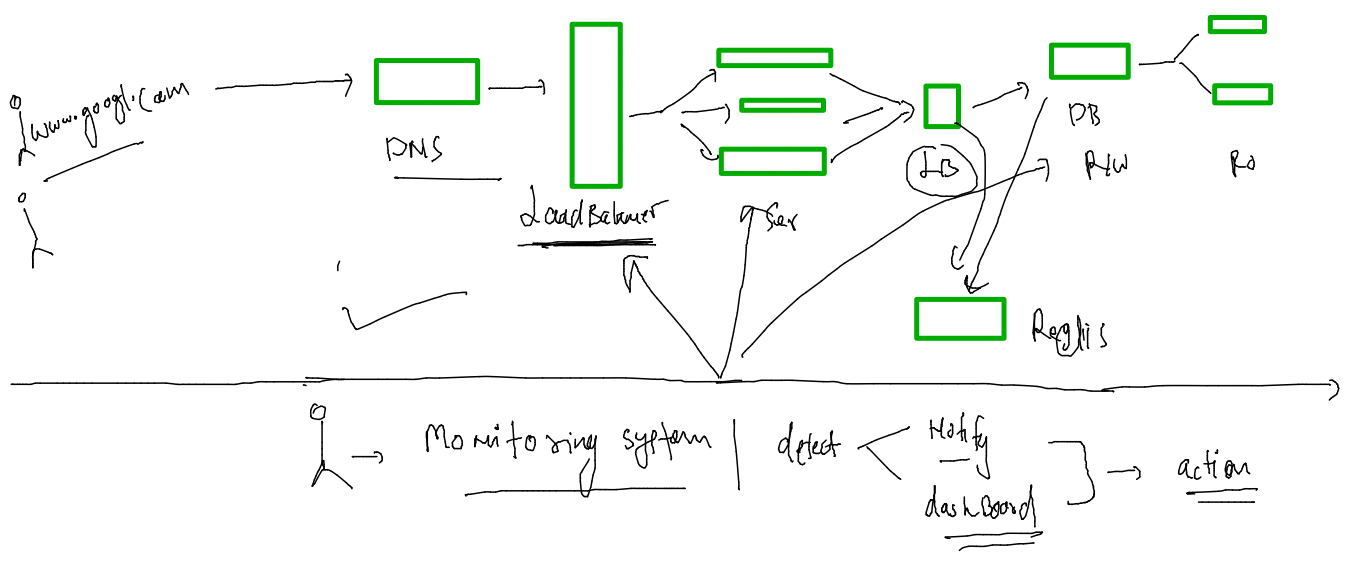 www.googl.com
DNS
Load Balancer
Ser
LB
DB
R/W
RO
Monitoring system
detect
Notify
dashBoard
action